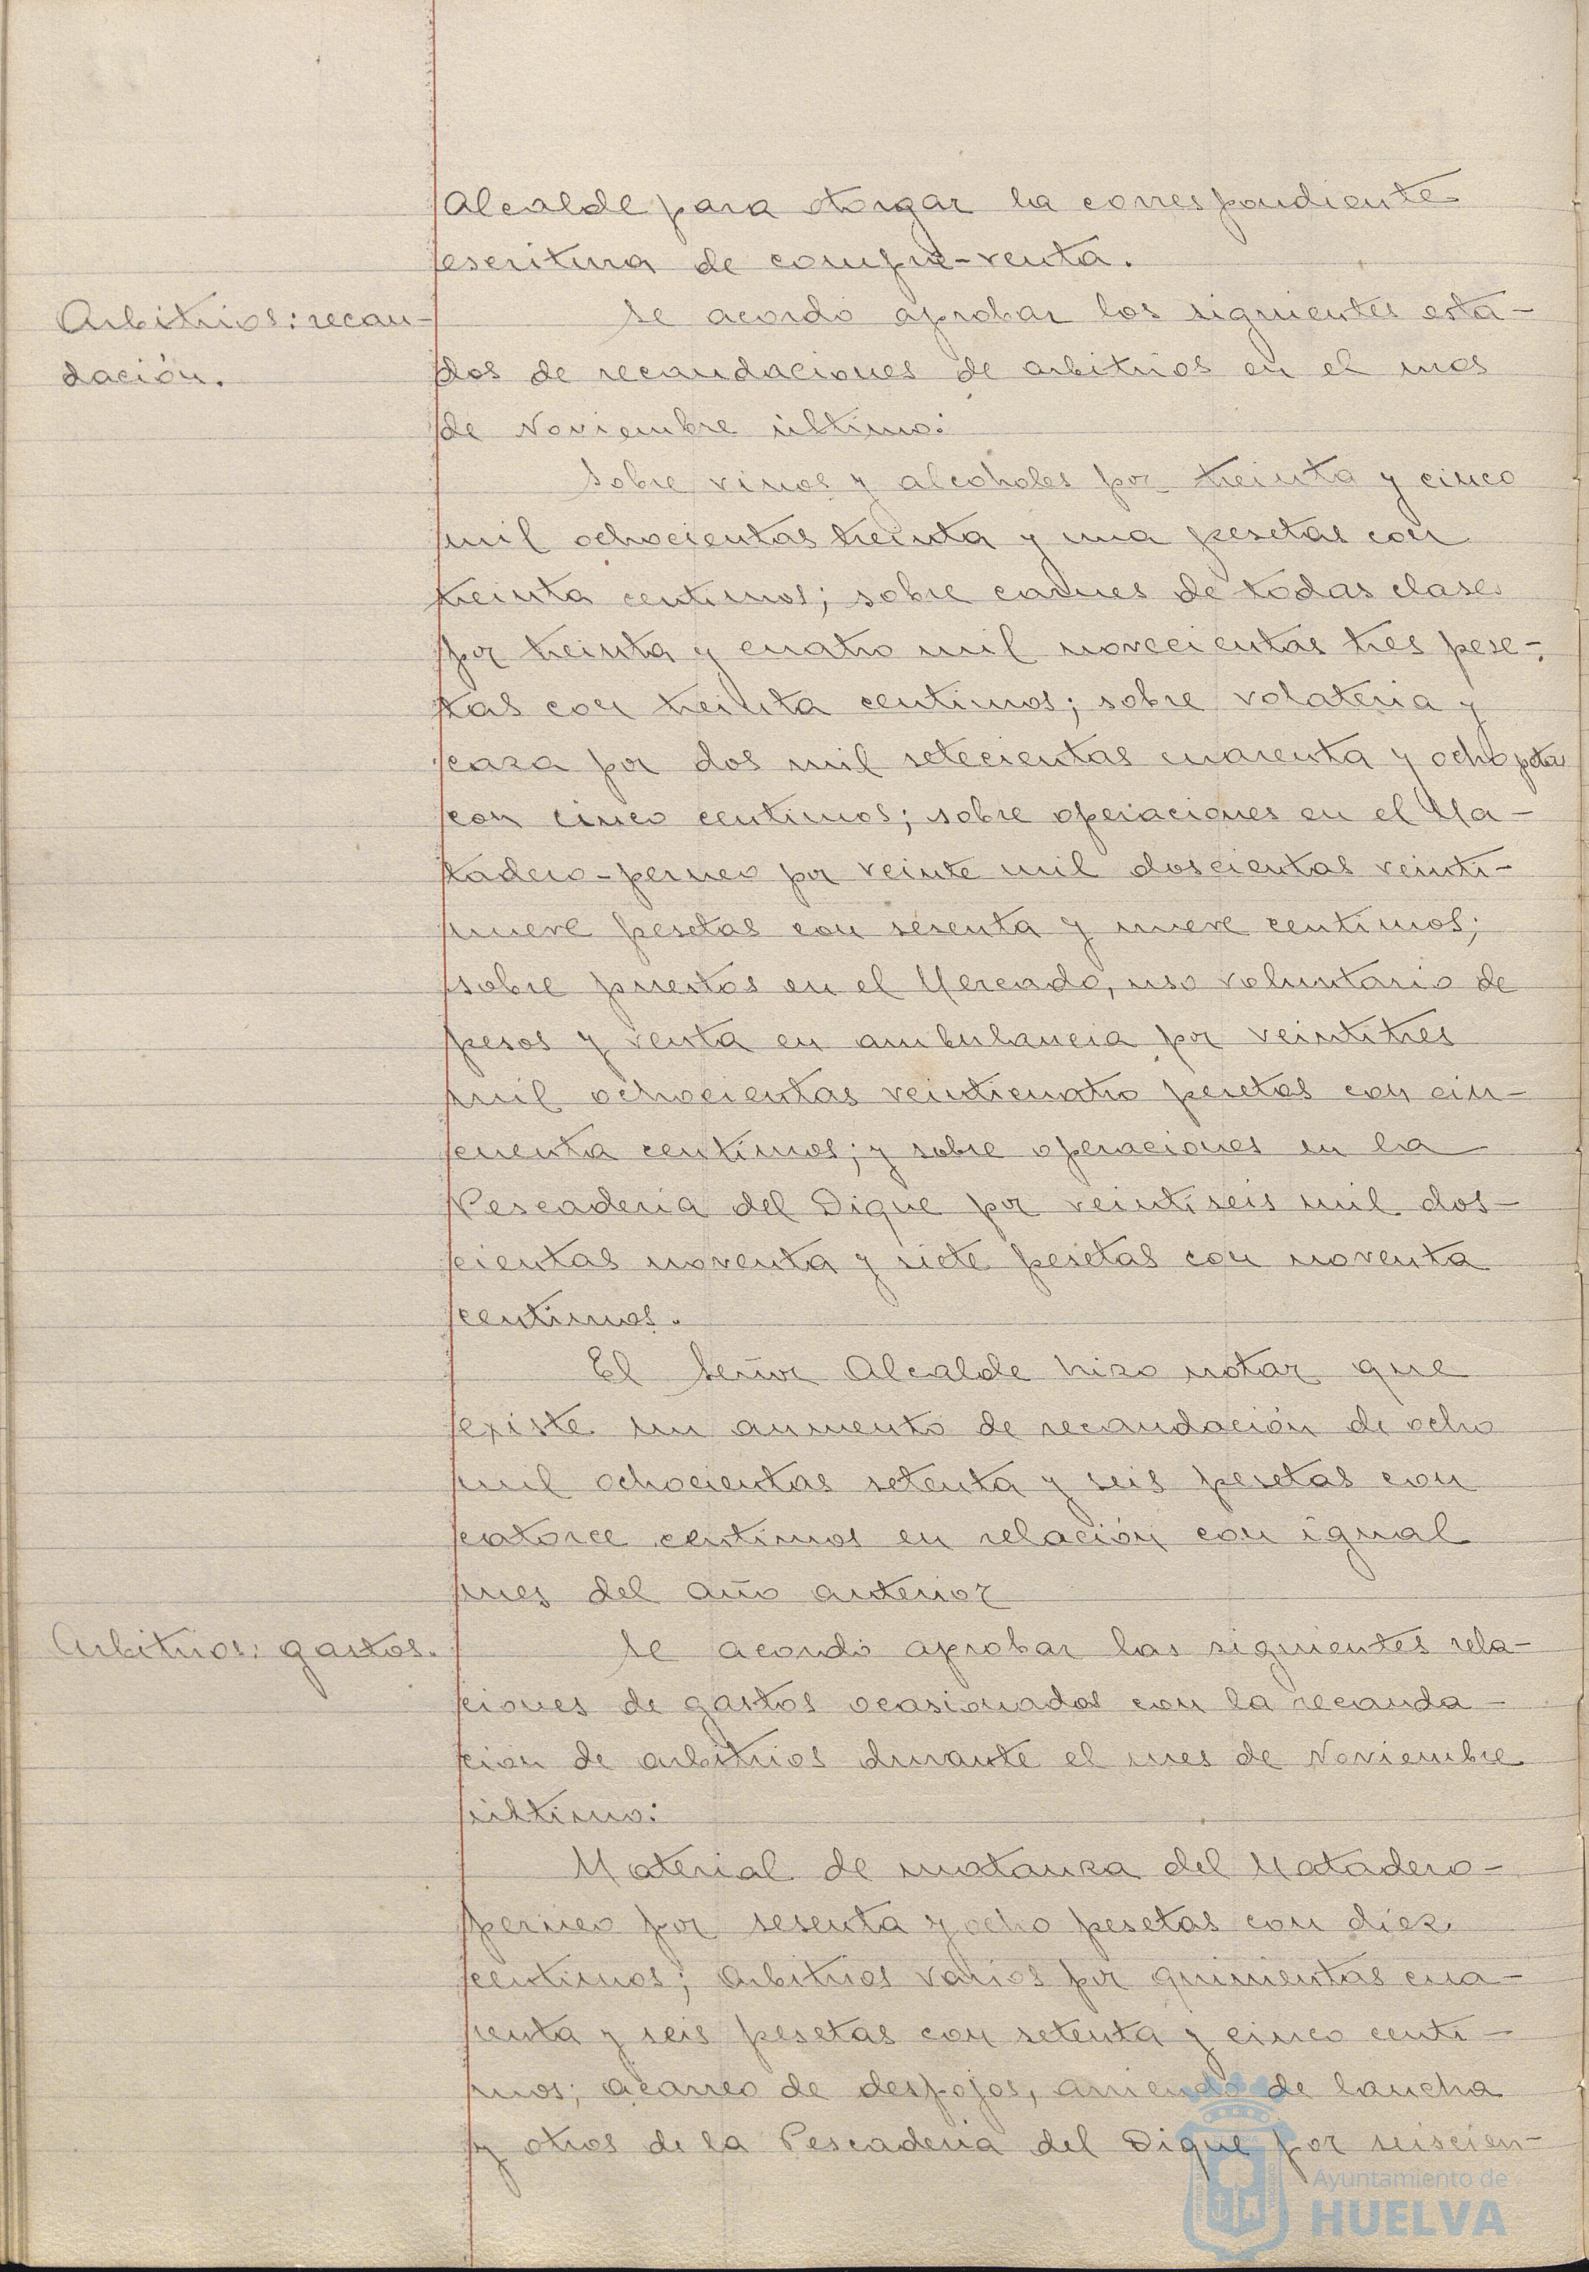 Alcalde para otorgar la correspondiente
escritura de compra-venta.
Arbitrios: recau-
dación.
Se acordó aprobar los siguientes esta-
dos de recaudaciones de arbitrios en el mes
de Noviembre último:
Sobre vinos y alcoholes por treinta y cinco
mil ochocientas treinta y una pesetas con
treinta centimos; sobre carnes de todas clases
por treinta y cuatro mil novecientas tres pese-
tas con treinta centimos; sobre volateria y
caza por dos mil setecientas cuarenta y ocho ptas
con cinco centimos; sobre operaciones en el Ma-
tadero-perneo por veinte mil doscientas veinti-
nueve pesetas con sesenta y nueve centimos;
sobre puestos en el Mercado, uso voluntario de
pesos y venta en ambulancia por veintitres
mil ochocientas veinticuatro pesetas con cin-
cuenta centimos; y sobre operaciones en la
Pescaderia del Dique por veintiseis mil dos-
cientas noventa y siete pesetas con noventa
centimos.
El Señor Alcalde hizo notar que
existe un aumento de recaudación de ocho
mil ochocientas setenta y seis pesetas con
catorce centimos en relación con igual
mes del año anterior
Arbitrios: gastos.
Se acordó aprobar las siguientes rela-
ciones de gastos ocasionados con la recauda-
ción de arbitrios durante el mes de Noviembre
último:
Material de matanza del Matadero-
perneo por sesenta y ocho pesetas con diez
centimos; Arbitrios varios por quinientas cua-
renta y seis pesetas con setenta y cinco centi-
mos; acarreo de despojos, arriendo de lancha
y otros de la Pescaderia del Dique por seiscien-
Ayuntamiento de
HUELVA